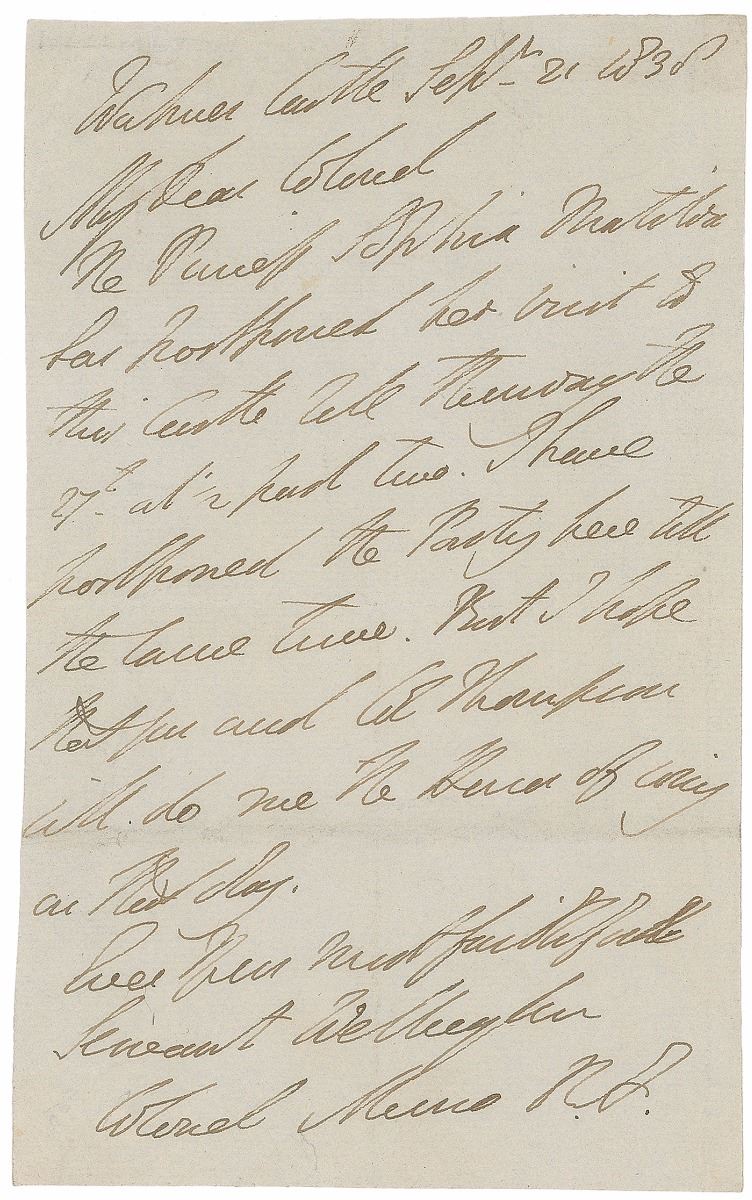 Walmer Castle Sept. 21 1838
My Dear Colonel
The Princess Sophia Matilda
has postponed her visit to
this Castle till Thursday the
27th at ½ past two. I have
postponed the Party here till
the same time. But I hope
that you and Col Thompson
will do me the Honor of coming
on that day.
Ever Your most faithful
Servant Wellington
Colonel Munro R.A.